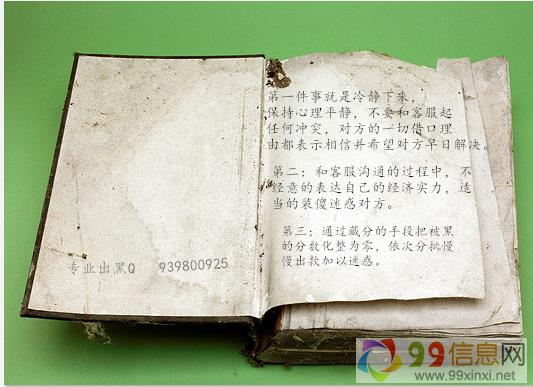 专业出黑Q 939800925
第一件事就是冷静下来,
保持心理平静,不要和客服起
任何冲突,对方的一切借口理
由都表示相信并希望对方早日解决。
第二:和客服沟通的过程中,不
经意的表达自己的经济实力,适
当的装傻迷惑对方。
第三:通过藏分的手段把被黑
的分数化整为零,依次分批慢
慢出款加以迷惑。
99信息网
www.99xinxi.net